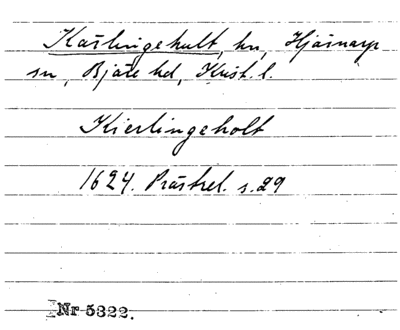 Kärlingehult, hn, Hjärnarp
sn, Bjäre hd, Krist. l.
Kierlingeholt
1624. Prästrel. s. 29
Nr 5322.